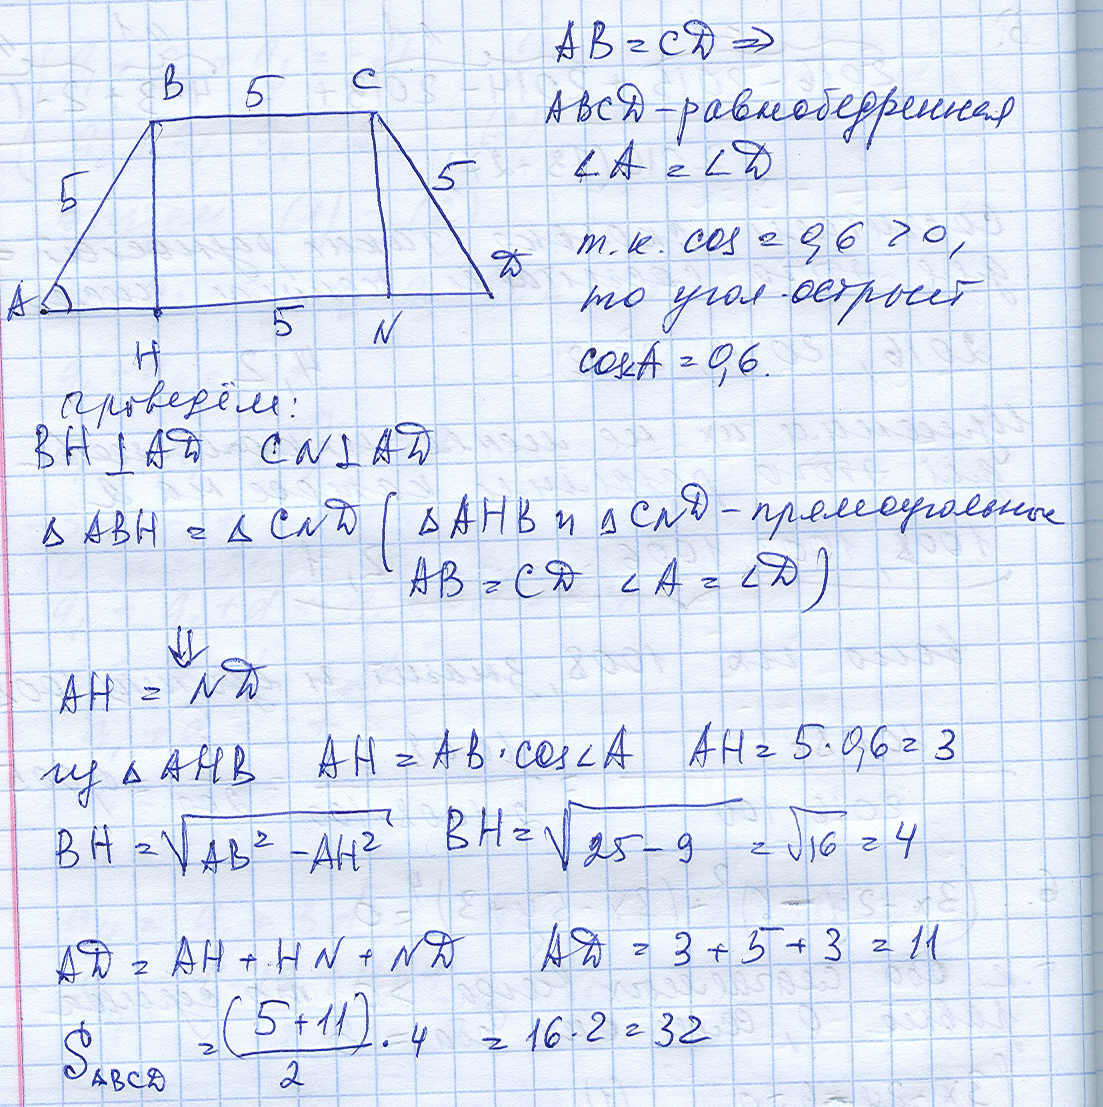 B 5 C
5 5
A D
H 5 N
AB = CD ⇒
ABCD - равнобедренная
∠A = ∠D
т.к. cos = 0,6 > 0,
то угол острый
cos∠A = 0,6.
проведём:
BH ⊥ AD CN ⊥ AD
△ ABH = △ CND ( △ AHB и △ CND - прямоугольные
AB = CD ∠A = ∠D )
⇓
AH = ND
из △ AHB AH = AB · cos∠A AH = 5 · 0,6 = 3
BH = √(AB² - AH²) BH = √(25 - 9) = √16 = 4
AD = AH + HN + ND AD = 3 + 5 + 3 = 11
S_ABCD = (5 + 11)/2 · 4 = 16 · 2 = 32